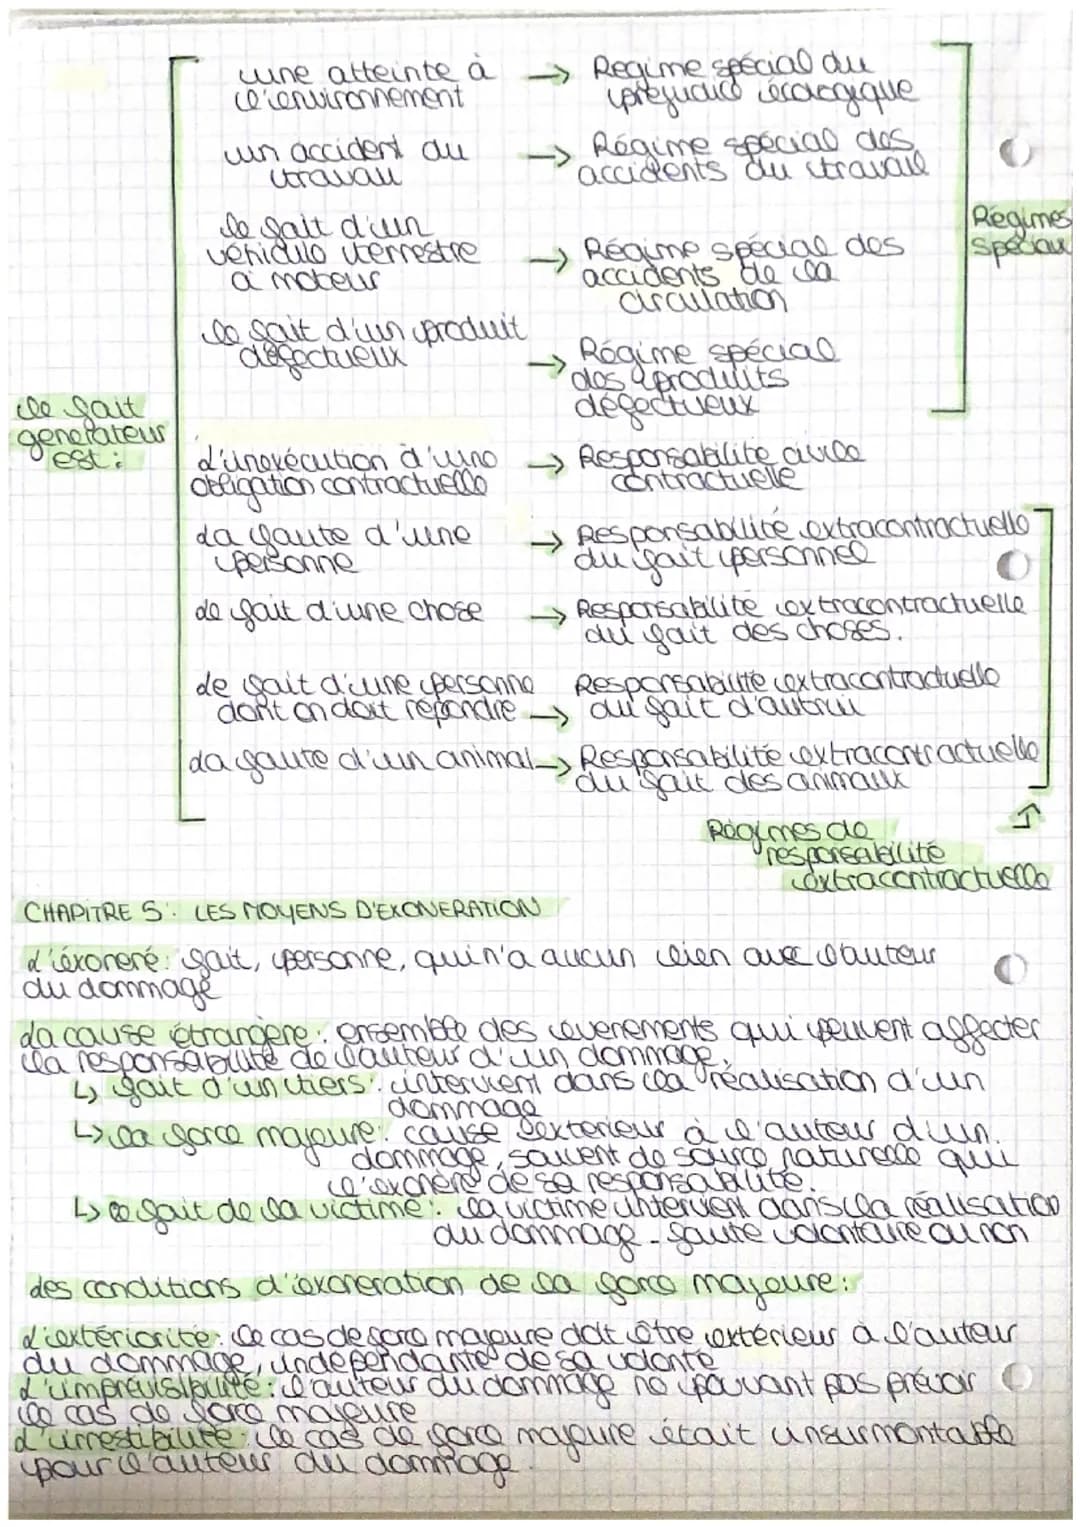 une atteinte à → Régime spécial du
l'environnement préjudice écologique
un accident du → Régime spécial des
travail accidents du travail
le fait d'un
véhicule terrestre → Régime spécial des
à moteur accidents de la
circulation
Régimes
spéciau
le fait d'un produit
défectueux → Régime spécial
des produits
défectueux
le fait
generateur
est :
L'inexécution d'une → Responsabilité civile
obligation contractuelle contractuelle
La faute d'une → Responsabilité extracontractuelle
personne du fait personnel
Le fait d'une chose → Responsabilité extracontractuelle
du fait des choses.
Le fait d'une personne Responsabilité extracontractuelle
dont on doit répondre → du fait d'autrui
La faute d'un animal → Responsabilité extracontractuelle
du fait des animaux
Régimes de
responsabilité
extracontractuelle
CHAPITRE 5 : LES MOYENS D'EXONERATION
L'éxoneré : fait, personne, qui n'a aucun lien avec l'auteur
du dommage
La cause étrangère : ensemble des evenements qui peuvent affecter
la responsabilité de l'auteur d'un dommage.
↳ fait d'un tiers : intervient dans la réalisation d'un
dommage
↳ la force majeure : cause exterieur à l'auteur d'un
dommage, souvent de source naturelle qui
l'exonère de sa responsabilité.
↳ le fait de la victime : la victime intervient dans la réalisation
du dommage - faute volontaire ou non
Les conditions d'exoneration de la force majeure :
L'extériorité : le cas de force majeure doit être extérieur à l'auteur
du dommage, indépendante de sa volonté
L'imprévisibilité : l'auteur du dommage ne pouvant pas prévoir
le cas de force majeure
L'irrestibilité : le cas de force majeure était insurmontable
pour l'auteur du dommage.